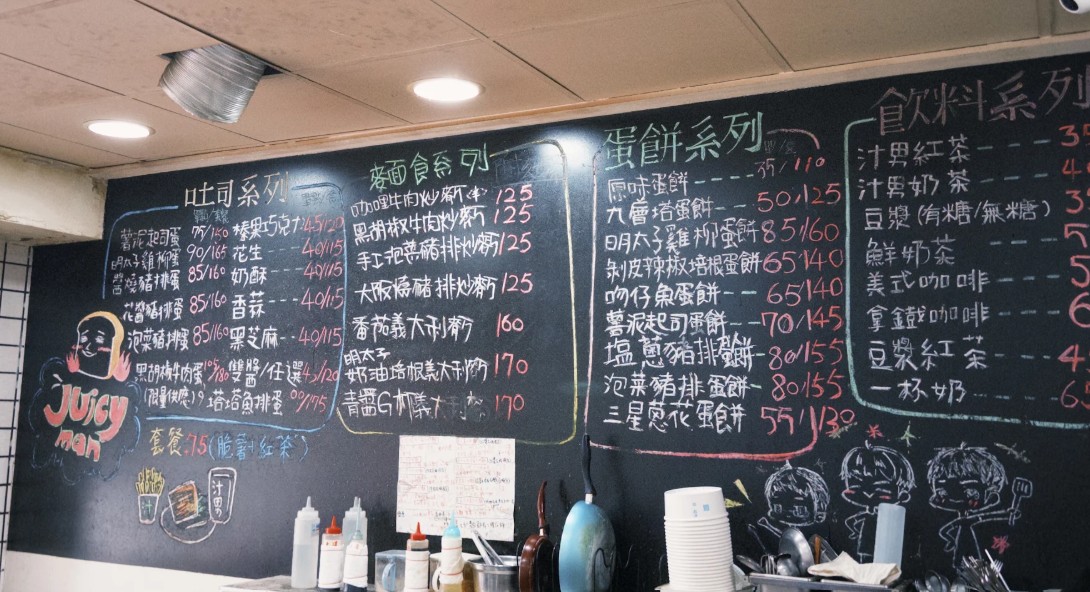 吐司系列
薯泥起司蛋 75/150
明太子雞柳蛋 90/165
醬燒豬排蛋 85/160
花醬豬排蛋 85/160
泡菜豬排蛋 85/160
黑胡椒牛肉蛋 105/180
(限量供應)
榛果巧克力 45/120
花生 40/115
奶酥 40/115
香蒜 40/115
黑芝麻 40/115
雙醬/任選 45/120
塔塔魚排蛋 /175
Juicy man
套餐.75(脆薯+紅茶)
汁
汁男
麥面食系列
咖哩牛肉炒 125
黑胡椒牛肉炒 125
手工泡菜豬排炒 125
大阪燒豬排炒 125
番茄義大利 160
明太子
奶油培根義大利 170
青醬義大利 170
蛋餅系列
原味蛋餅 35/110
九層塔蛋餅 50/125
明太子雞柳蛋餅 85/160
剝皮辣椒培根蛋餅 65/140
吻仔魚蛋餅 65/140
薯泥起司蛋餅 70/145
塩蔥豬排蛋餅 80/155
泡菜豬排蛋餅 80/155
三星蔥花蛋餅 55/130
飲料系列
汁男紅茶
汁男奶茶
豆漿(有糖/無糖)
鮮奶茶
美式咖啡
拿鐵咖啡
豆漿紅茶
一杯奶